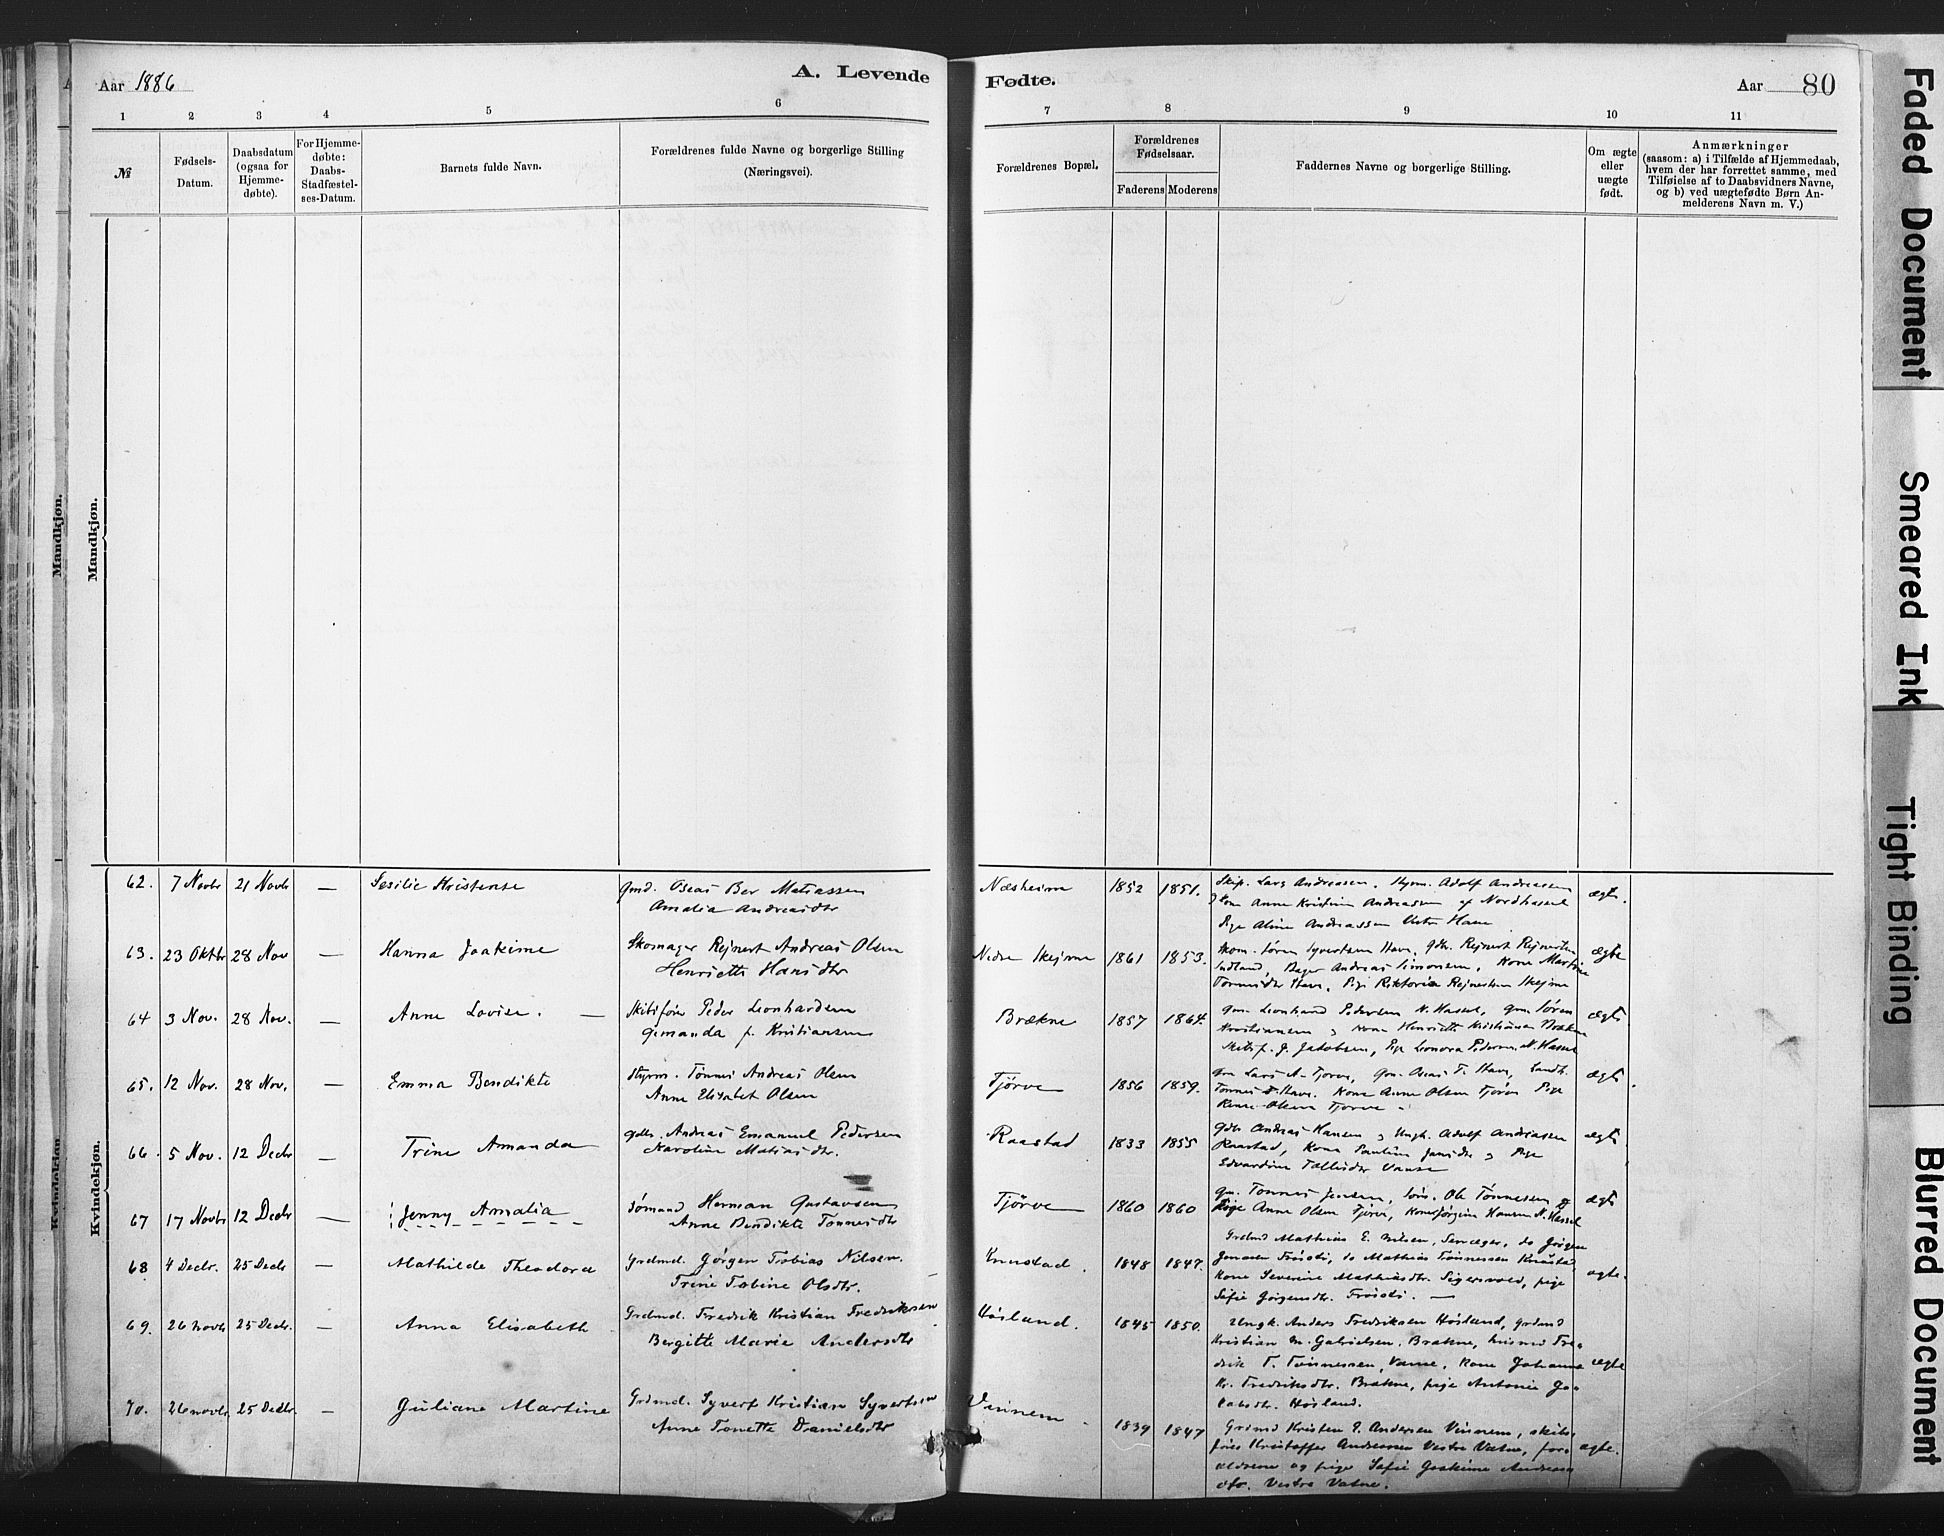 Aar 1886
A. Levende
Fødte.
Aar 80
1 2 3 4 5 6 7 8 9 10 11
№
Fødsels-
Datum.
Daabsdatum
(ogsaa for
Hjemme-
døbte).
For Hjemme-
døbte:
Daabs-
Stadfæstel-
ses-Datum.
Barnets fulde Navn.
Forældrenes fulde Navne og borgerlige Stilling
(Næringsvei).
Forældrenes Bopæl.
Forældrenes
Fødselsaar.
Faderens Moderens
Faddernes Navne og borgerlige Stilling.
Om ægte
eller
uægte
født.
Anmærkninger
(saasom: a) i Tilfælde af Hjemmedaab,
hvem der har forrettet samme, med
Tilføielse af to Daabsvidners Navne,
og b) ved uægtefødte Børn An-
melderens Navn m. V.)
Mandkjøn.
Mandkjøn.
Kvindekjøn.
Kvindekjøn.
62. 7 Novbr 21 Novbr — Sesilie Kristense
Gmd. Oseas Ber Matiassen
Amalia Andreasdtr
Næsheim 1852 1851.
Skip. Lars Andreasen. Styrm. Adolf Andreasen
Kone Anne Kristine Andreasen af Nordhassel
Pige Aline Andreassen Vestre Have
ægte.
63. 23 Oktbr 28 Nov — Hanna Joakime
Skomager Rejnert Andreas Olsen
Henriette Hansdtr
Nedre Skejme 1861 1853.
Skom. Søren Syvertsen Have, Gdr. Rejnert Rejnertsen
Indland, Bager Andreas Simonsen, Kone Martine
Tønnesdtr Have, Pige Riktoria Rejnertsen Skejme
ægte
64 3 Nov. 28 Nov. — Anne Lovise. —
Skibsfører Peder Leonhardsen
Gemanda f. Kristiansen
Brækne 1857 1864.
Gm. Leonhard Pedersen N. Hassel, Gm. Søren
Kristiansen og Kone Henriette Kristiansen Brækne
Skibsf. J. Jakobsen, Pige Leonora Pedersen N. Hassel
ægte
65. 12 Nov. 28 Nov. — Emma Bendikte
Styrm. Tønnes Andreas Olsen
Anne Elisabet Olsen
Tjørve 1856 1859.
Gm Lars A. Tjørve, Gm. Oseas T. Have,
Tønnes T. Have. Kone Anne Olsen Tjørve Pige
Olsen Tjørve
ægte
66. 5 Nov. 12 Decbr — Trine Amanda
Gdbr. Andreas Emanuel Pedersen
Karoline Matiasdtr.
Raastad 1833 1855
Gdbr Andreas Hansen og Ungk. Adolf Andreassen
Raastad, Kone Pauline Jansdtr og Pige
Edvardine Tallesdtr Vanse
ægte
67 17 Novbr 12 Decbr — Jenny Amalia
Sømand Herman Gustavsen
Anne Bendikte Tønnesdtr
Tjørve 1860 1860
Gm. Tønnes Jensen, Søm. Ole Tønnesen og
Pige Anne Olsen Tjørve, Kone Jørgine Hansen N. Hassel
ægte
68 4 Decbr. 25 Decbr — Mathilde Theodora
Grdmd. Jørgen Tobias Nilsen.
Trine Tobine Olsdtr.
Knustad. 1848 1847.
Grdmd Mathias E. Nilsen, do Jørgen
Jonassen Trøisti, do Mathias Tønnessen Knustad
Kone Severine Mathiasdtr. Sigersvold, pige
Sofie Jørgensdtr. Trøisti. —
ægte.
69. 26 novbr 25 Decbr. — Anna Elisabeth
Grdmd. Fredrik Kristian Fredriksen
Bergitte Marie Andersdtr
Høiland. 1845 1850.
Ungk. Anders Fredriksen Høiland, Grdmd
Kristian M. Gabrielsen, Brakne, husmd Fre-
drik T. Tønnessen, Vanse, Kone Johanne
K. Fredriksdtr. Brakne, pige Antonie Ja-
kobsdtr. Høiland.
ægte
70. 26 novbr. 25 Decbr. — Guliane Martine
Grdmd. Syvert Kristian Syvertsen
Anne Tonette Danielsdtr
Vinnem 1839 1847
Grdmd Kristen G. Andersen Vinnem, skibs-
fører Kristoffer Andreassen Vestre Vatne, for-
ældrene og pige Sofie Joakime Andreas-
dtr. Vestre Vatne.
ægte.
Faded Document
Smeared Ink
Tight Binding
Blurred Document